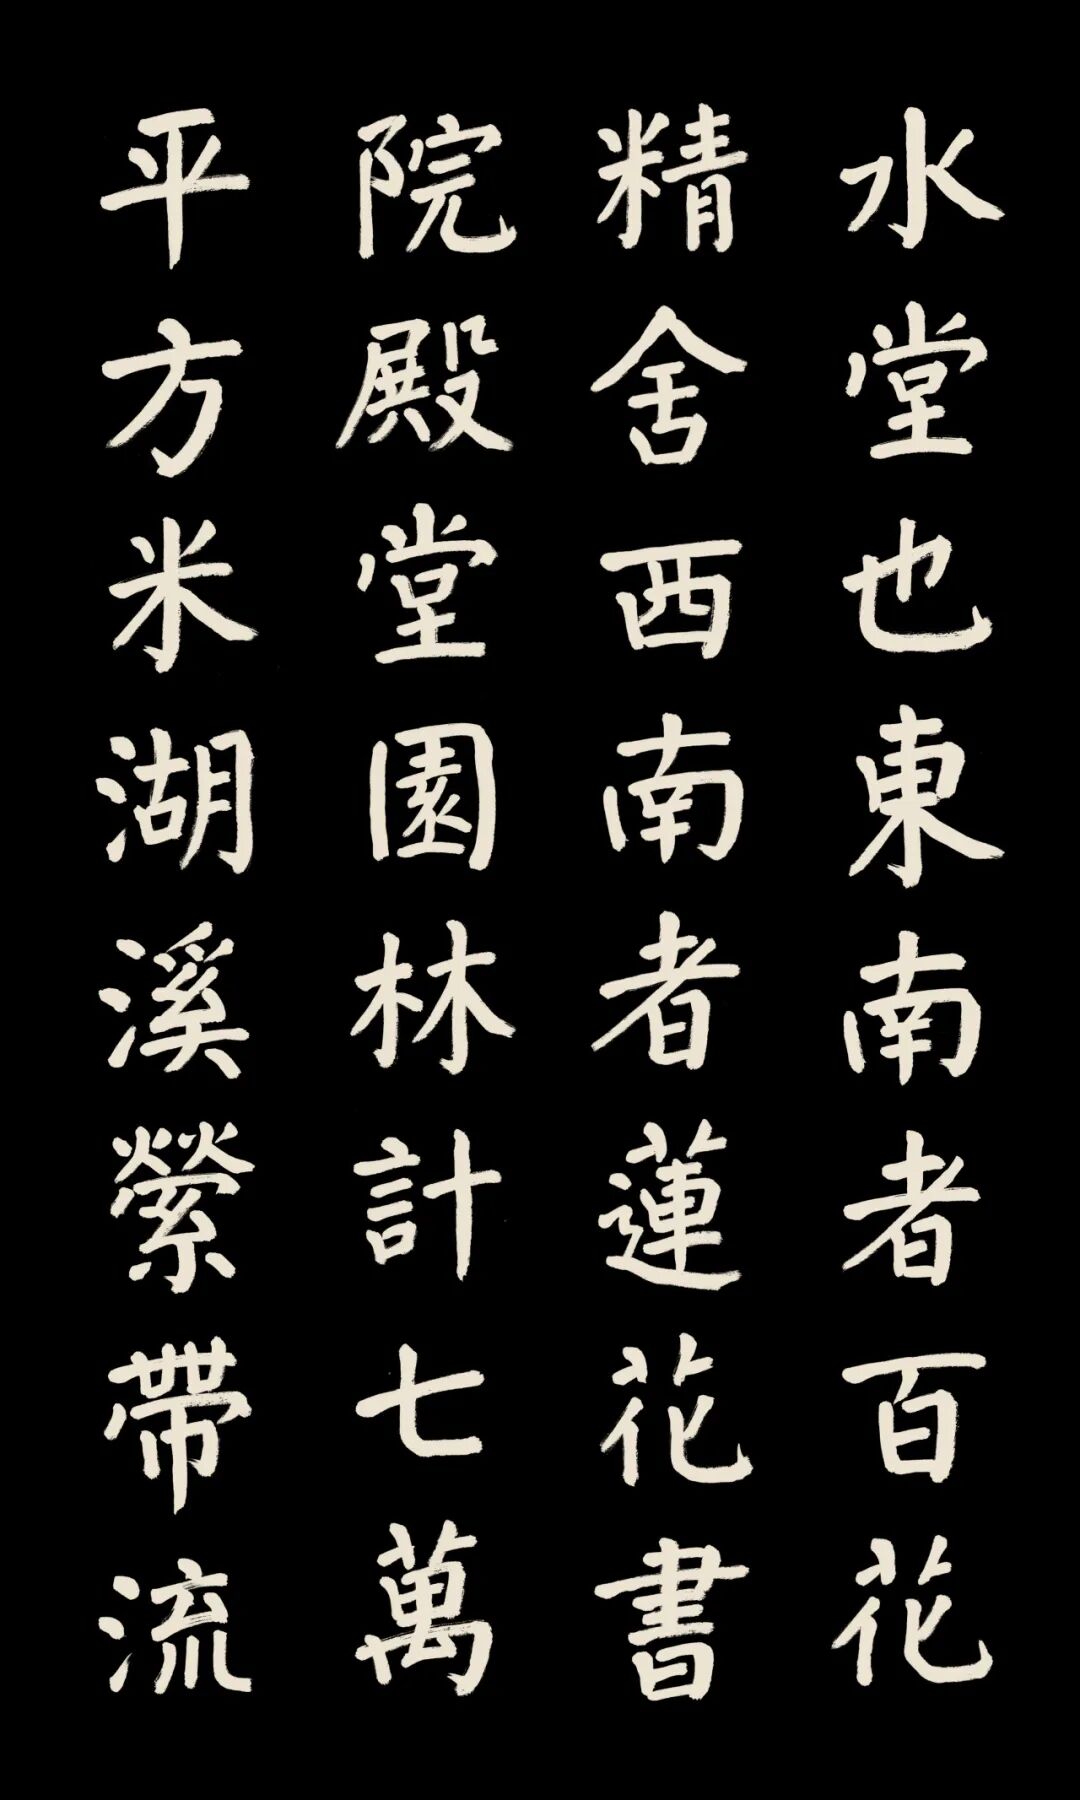 水堂也東南者百花
精舍西南者蓮花書
院殿堂園林計七萬
平方米湖溪縈帶流